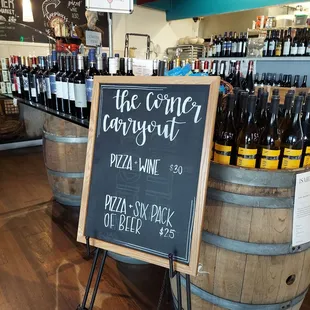 the Corner
Carryout
PIZZA + WINE $30
PIZZA + SIX PACK
OF BEER $25